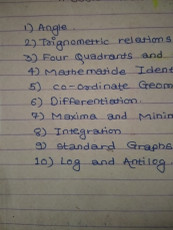 1) Angle.
2) Trignometric relations
3) Four Quadrants and
4) Mathematide Ident
5) co-ordinate Geom
6) Differentiation.
7) Maxima and Minim
8) Integration
9) Standard Graphs
10) Log and Antilog.